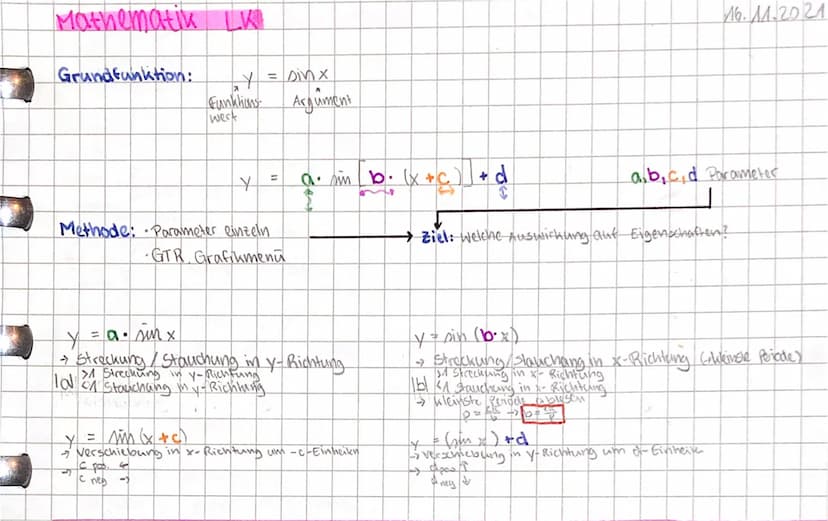 Mathematik LK
16.11.2021
Grundfunktion: y = sin x
Funktions- Argument
wert
y = a · sin [ b · (x + c) ] + d
a, b, c, d Parameter
Methode: · Parameter einzeln
Ziel: Welche Auswirkung auf Eigenschaften?
· GTR Grafikmenü
y = a · sin x
→ Streckung / Stauchung in y-Richtung
|a| >1 Streckung in y-Richtung
<1 Stauchung in y-Richtung
y = sin (b · x)
→ Streckung/Stauchung in x-Richtung (kleinste Periode)
|b| >1 Streckung in x-Richtung
<1 Stauchung in x-Richtung
→ kleinste Periode ablesen
p = 2π/b → b = 2π/p
y = sin (x + c)
→ Verschiebung in x-Richtung um -c-Einheiten
→ c pos. ←
c neg →
y = (sin x) + d
→ Verschiebung in y-Richtung um d-Einheit
→ d pos ↑
d neg ↓